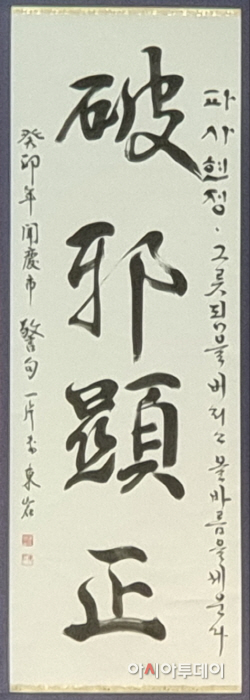 파사현정·그릇됨을버리고 올바름을세운다
破邪顯正
癸卯年 聞慶市 警句一片 東岩
아시아투데이